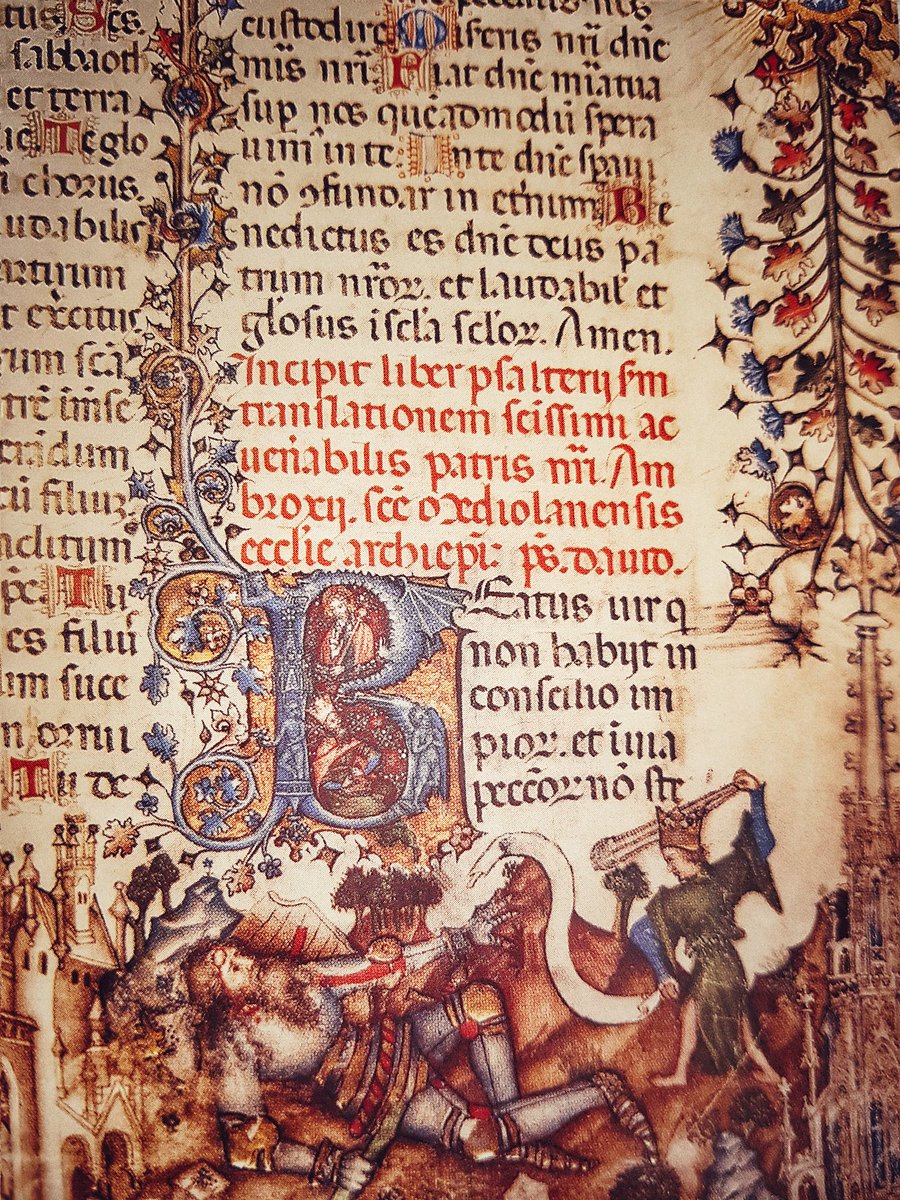 tus Scs.
sabbaoth
et terra
Te glo
chorus.
udabilis
artirum
t exc̄itus
rum scā
trē īmse
erādum
cū filiuz
aclitum
Tu
es filiu
um susce
n orrui
Tu de
custodire Miseris nr̄i dn̄e
mis nr̄i Fiat dn̄e mīa tua
sup̄ nos quēadmodū spera
uimꝰ in te In te dn̄e spaui
nō ꝯfundar in et̄num Be
nedictus es dn̄e deus pa
trum nr̄oꝝ. et laudabil' et
gl'osus i scl'a scl'oꝝ. Amen.
Incipit liber psalterij sm
translationem scissimi ac
uen̄abilis patris nr̄i. Am
broxij. scē Mediolanensis
eccl'ie archiepi. ps. dauid.
BEatus uir q
non habijt in
conscilio im
pioꝝ. et ī uia
peccōꝝ nō ste